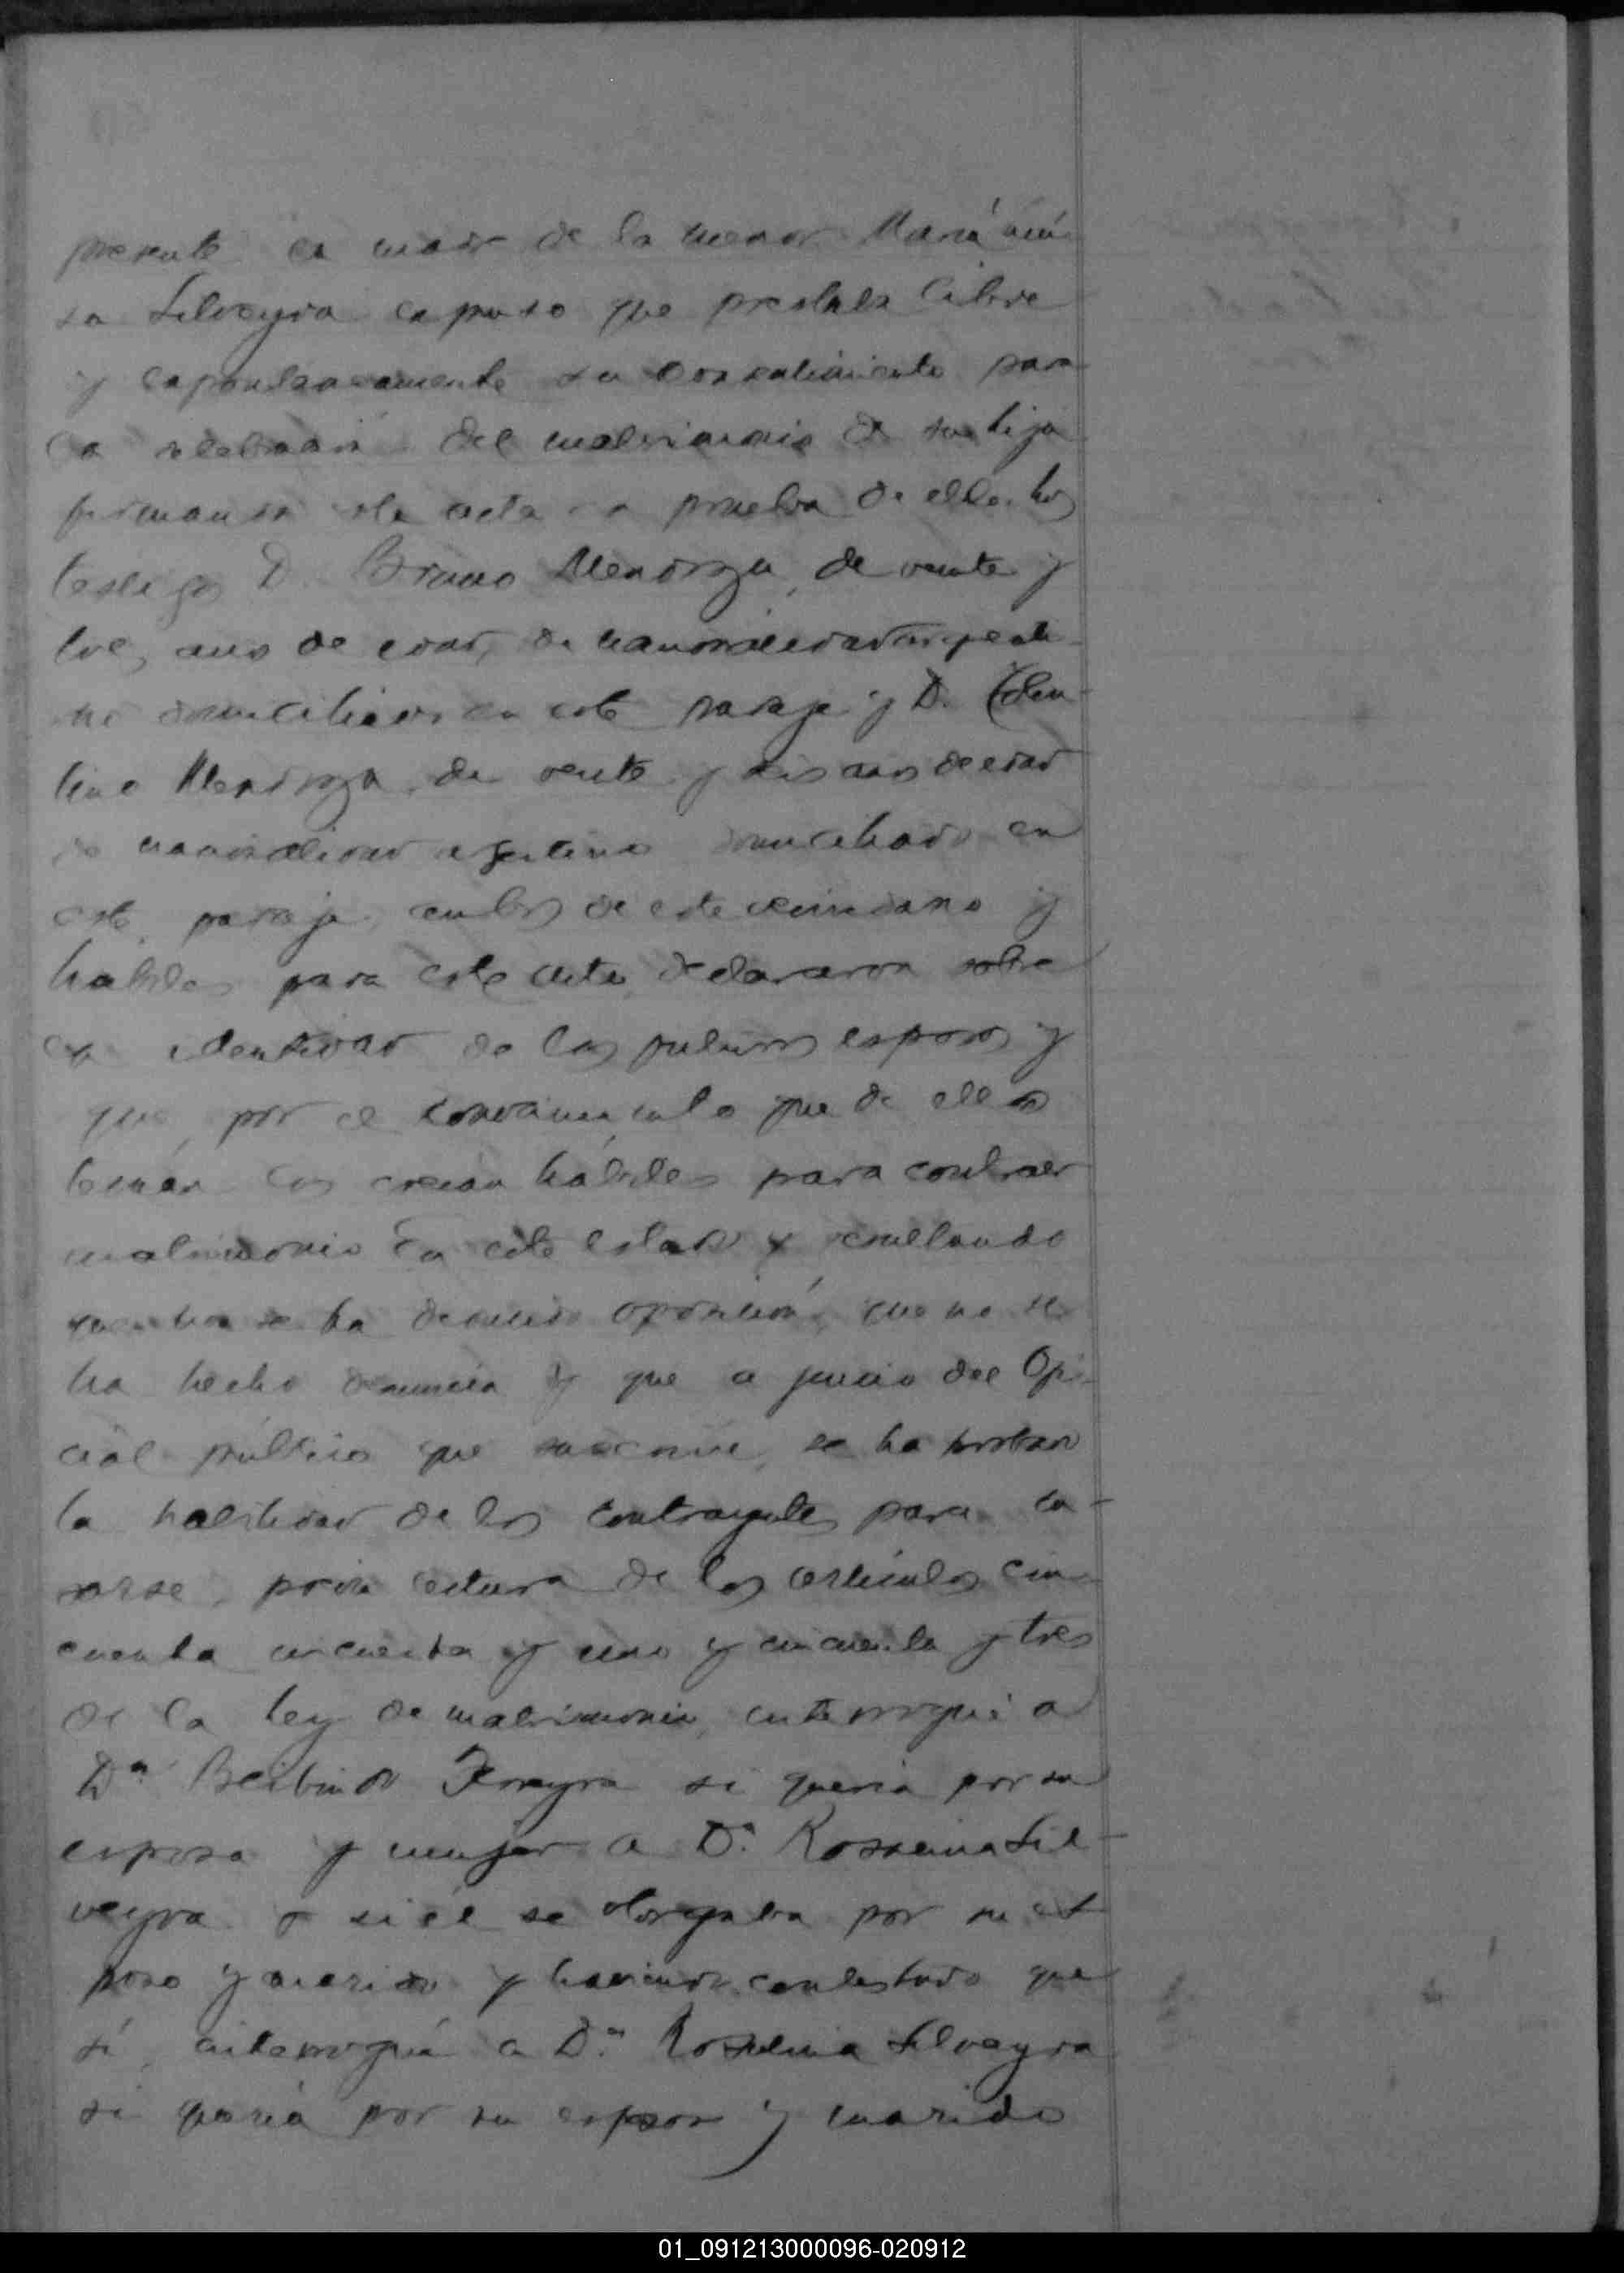 presente la madre de la menor María
sa Silveyra espuso que prestaba libre
y espontaneamente su consentimiento para
la celebración del matrimonio de su hija
firmando esta acta en prueba de ello. Los
testigos D. Bruno Mendoza, de veinte y
tres años de edad, de nacionalidad argenti-
no domiciliado en este paraje y D.
tino Mendoza, de veinte y seis años de edad
de nacionalidad argentino domiciliado en
este paraje, ambos de este vecindario y
habiles para este acto, declararon sobre
la identidad de los futuros esposos y
que, por el conocimiento que de ellos
tenían los creían hábiles para contraer
matrimonio En este estado y resultando
que no se ha deducido oposición, que no se
ha hecho denuncia y que a juicio del Ofi-
cial público que suscribe, se ha probado
la habilidad de los contrayentes para ca-
sarse, previa lectura de los artículos cin-
cuenta cincuenta y uno y cincuenta y tres
de la ley de matrimonio, interrogué a
Dn Ferreyra si queria por su
esposa y mujer a Da. Rosseina Sil-
veyra y si él se otorgaba por su es
poso y marido y habiendo contestado que
sí, interrogué a Da. Silveyra
si quería por su esposo y marido
01_091213000096-020912